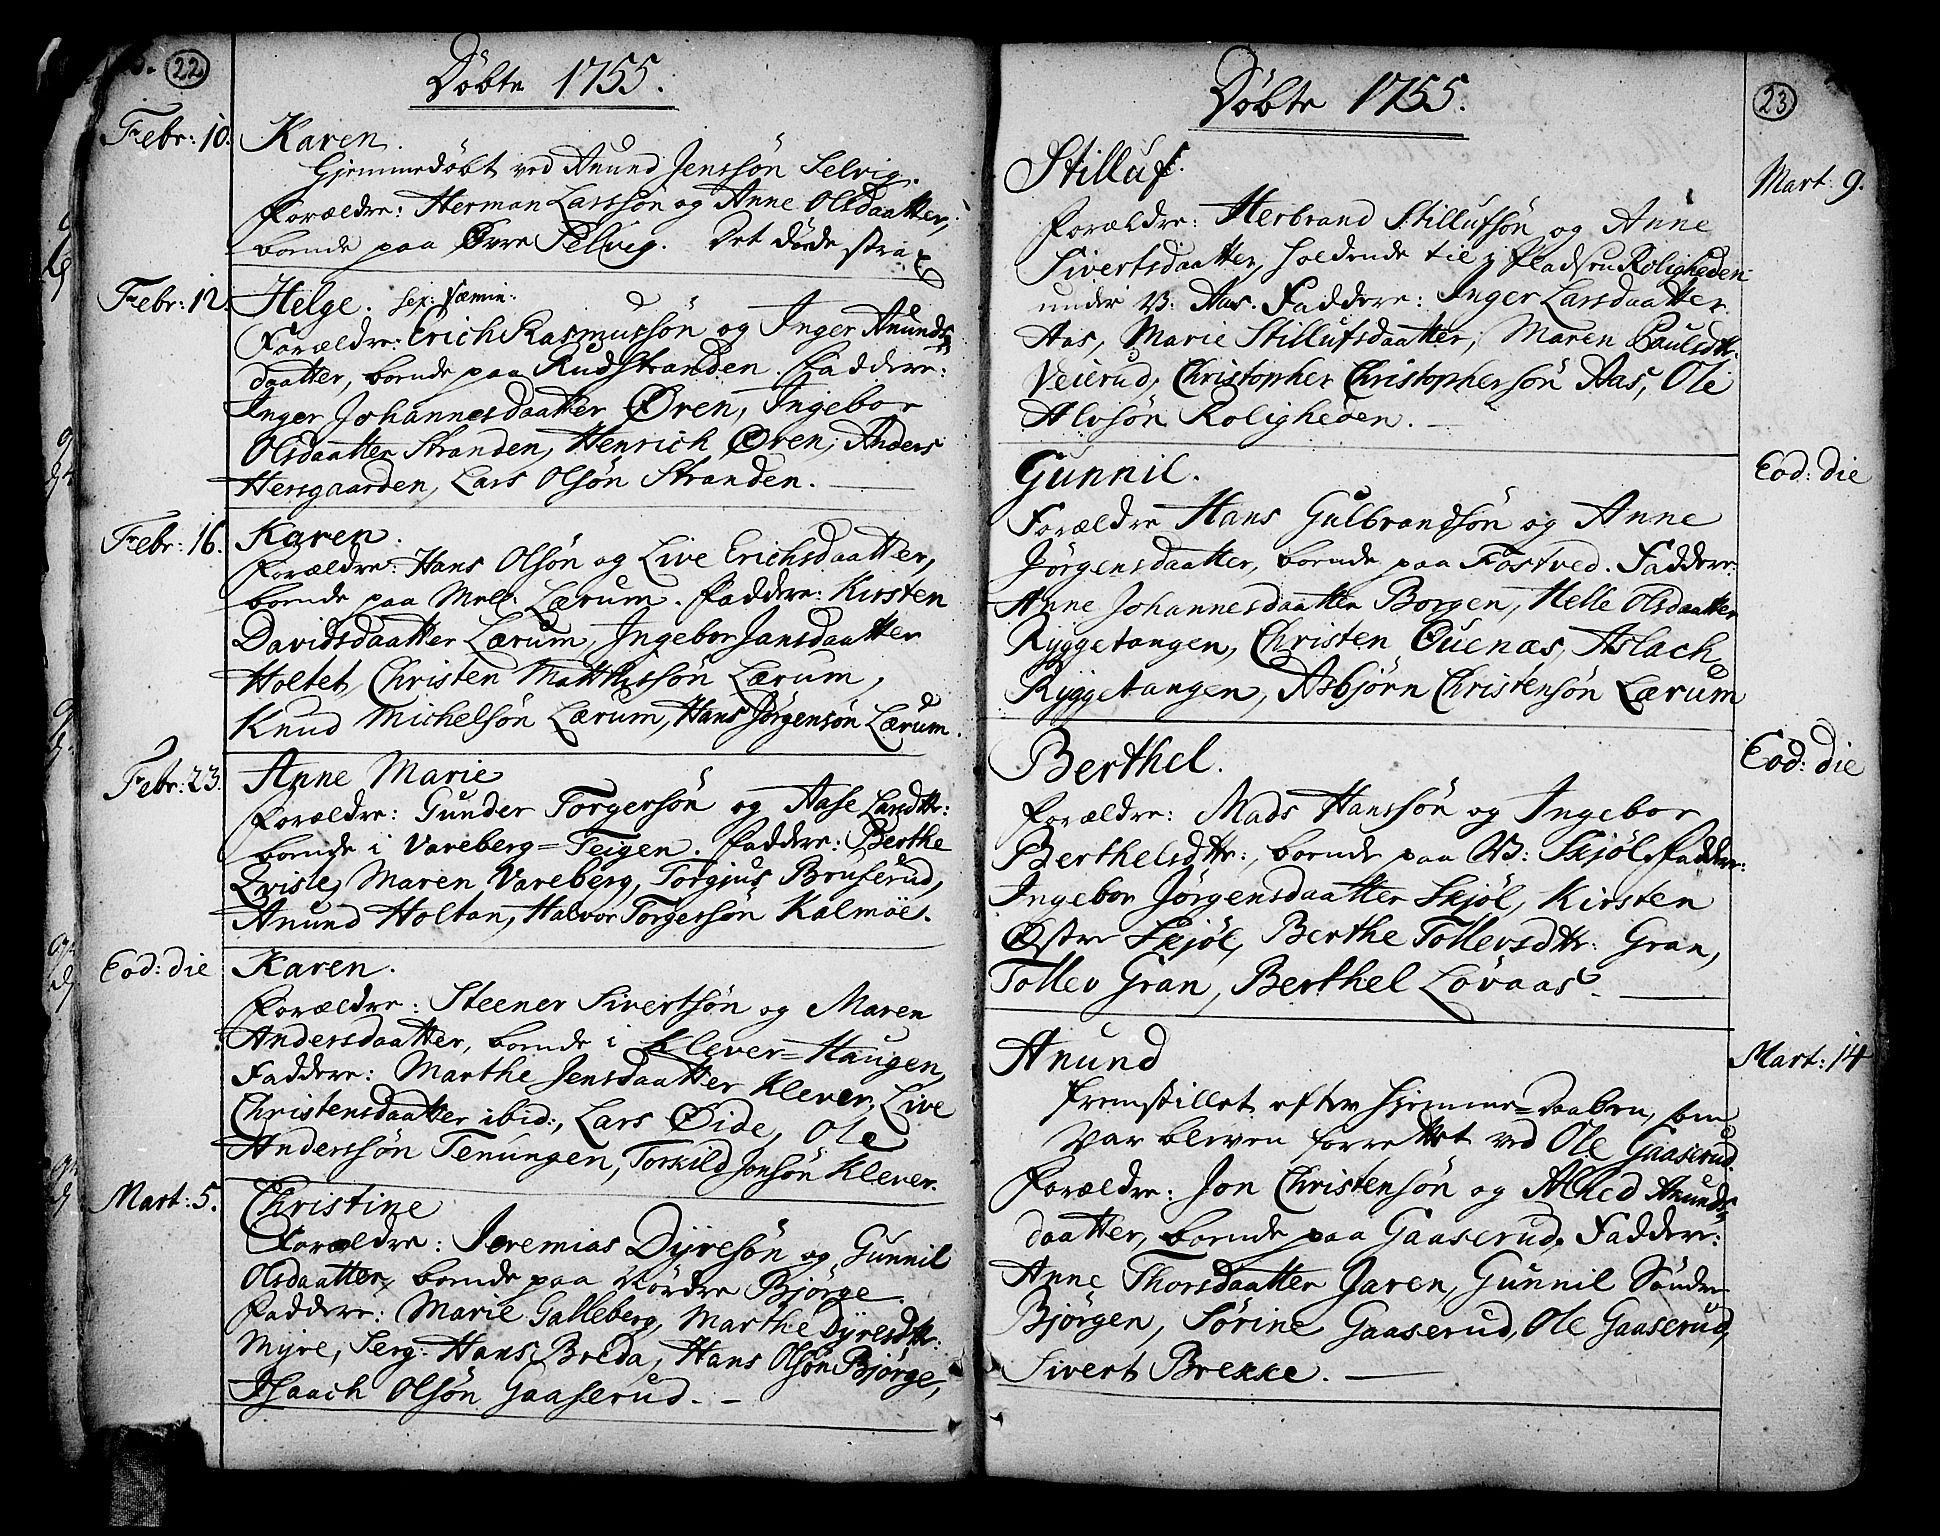 22
Døbte 1755.
Febr: 10. Karen.
Hjemmedøbt ved Anund Jenssøn Selvig.
Forældre: Herman Larssøn og Anne Olsdaatter,
boende paa Øvre Selvig. Det døde strax
Febr: 12. Helge. sex: fæmin:
Forældre: Erich Rasmussøn og Inger Anunds
daatter, boende paa Rudstranden. Faddere:
Inger Johannesdaatter Øren, Ingebor
Olsdaatter Stranden, Henrich Øren, Anders
Hersgaarden, Lars Olsøn Stranden.
Febr: 16. Karen.
Forældre: Hans Olsøn og Live Erichsdaatter,
boende paa Mell. Lærum. Faddere: Kirsten
Davidsdaatter Lærum, Ingebor Jansdaatter
Holtet, Christen Matthissøn Lærum,
Knud Michelsøn Lærum, Hans Jørgensøn Lærum.
Febr: 23. Anne Marie
Forældre: Gunder Torgersøn og Aase Larsdttr:
boende i Vareberg=Teigen. Faddere: Berthe
Qvisle, Maren Vareberg, Torgjus Bruserud,
Anund Holtan, Halvor Torgersøn Kalmöe.
Eod: die Karen.
Forældre: Steener Sivertsøn og Maren
Andersdaatter, boende i Klever=Haugen,
Faddere: Marthe Jensdaatter Klever, Live
Christensdaatter ibid:, Lars Øide, Ole
Anderssøn Tenungen, Torkild Jonsøn Klever.
Mart: 5. Christine
Forældre: Jeremias Dÿresøn og Gunnil
Olsdaatter, boende paa Nørdre Bjørge.
Faddere: Marie Galleberg, Marthe Dÿresdttr:
Mÿre, Serg: Hans Breda, Hans Olsøn Bjørge,
Isaach Olsøn Gaaserud. -
23
Døbte 1755.
Stilluf. Mart: 9.
Forældre: Herbrand Stillufsøn og Anne
Sivertsdaatter, holdende til i Pladsen Roligheden
under V: Aas. Faddere: Inger Larsdaatter
Aas, Marie Stillufsdaatter, Maren Paulsdttr:
Veierud, Christopher Christophersøn Aas, Ole
Alvsøn Roligheden.
Gunnil. Eod: die
Forældre Hans Gulbrandsøn og Anne
Jørgensdaatter, boende paa Fostved. Faddere:
Anne Johannesdaatter Borgen, Helle Olsdaatter
Rÿggetangen, Christen Quenæs, Aslach
Rÿggetangen, Asbjørn Christensøn Lærum
Berthel. Eod: die
Forældre: Mads Hanssøn og Ingebor
Berthelsdttr:, boende paa V: Skjøl. Faddere:
Ingebor Jørgensdaatter Skjøl, Kirsten
Østre Skjøl, Berthe Tollevsdttr: Gran,
Tollev Gran, Berthel Løvaas.
Anund Mart: 14
Fremstillet efter Hjemme=Daaben, som
var bleven forrettet ved Ole Gaaserud.
Forældre: Jon Christensøn og Alhed Anunds
daatter, boende paa Gaaserud. Faddere:
Anne Thorsdaatter Jaren, Gunnil Søndre
Bjørgen, Sørine Gaaserud, Ole Gaaserud,
Sivert Brekke.